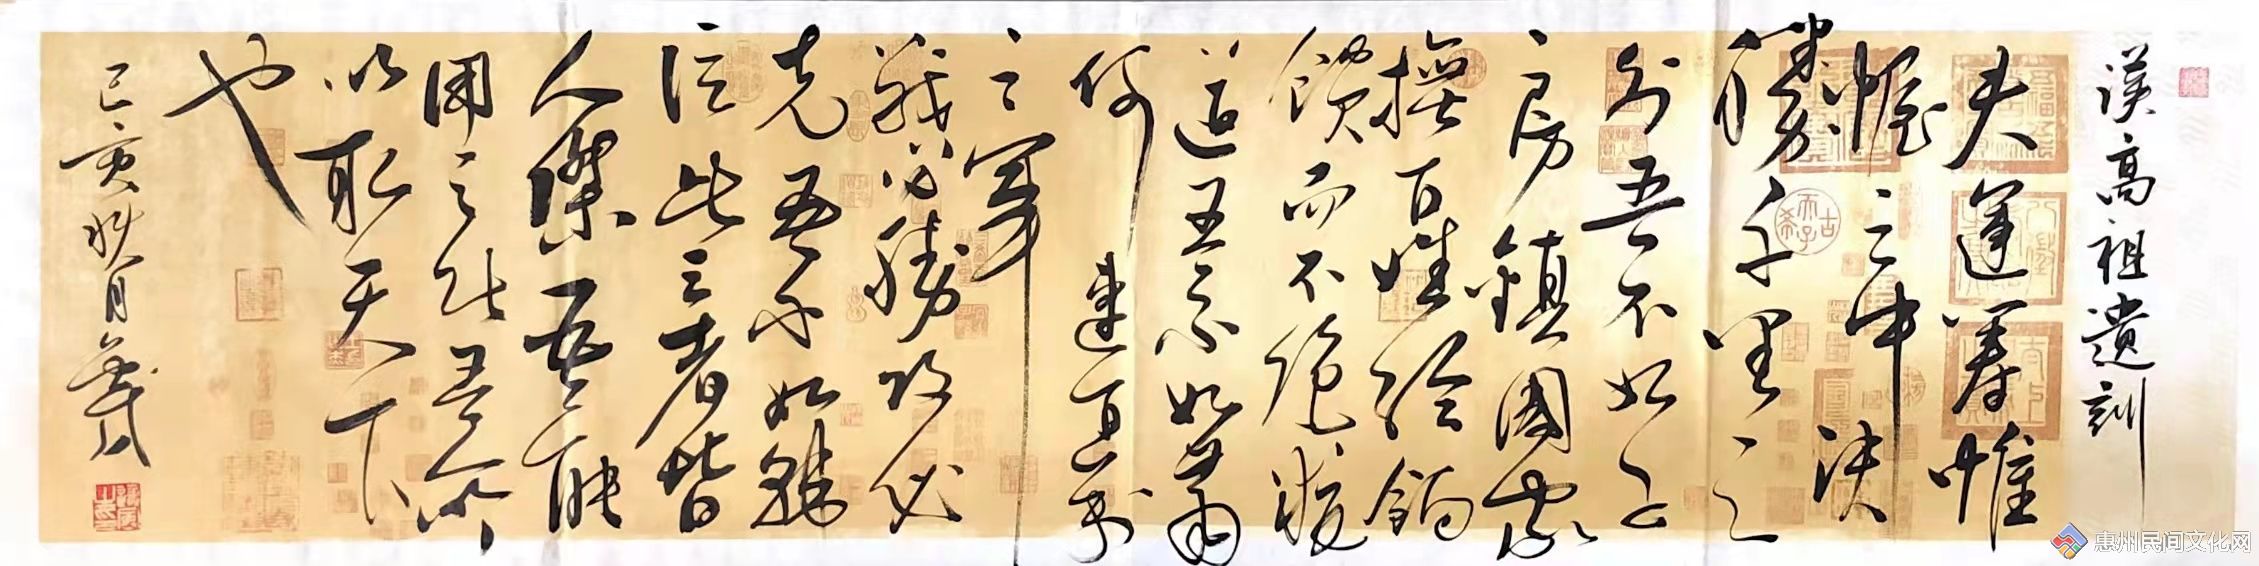 漢高祖遺訓
夫運籌帷
幄之中決
勝千里之
外吾不如子
房鎮國家
撫百姓給餉
饋而不絕糧
道吾不如蕭
何連百萬
之軍
戰必勝攻必
克吾不如韓
信此三者皆
人傑吾能
用之此吾所
以取天下
也
己亥秋月
古希天子
惠州民间文化网